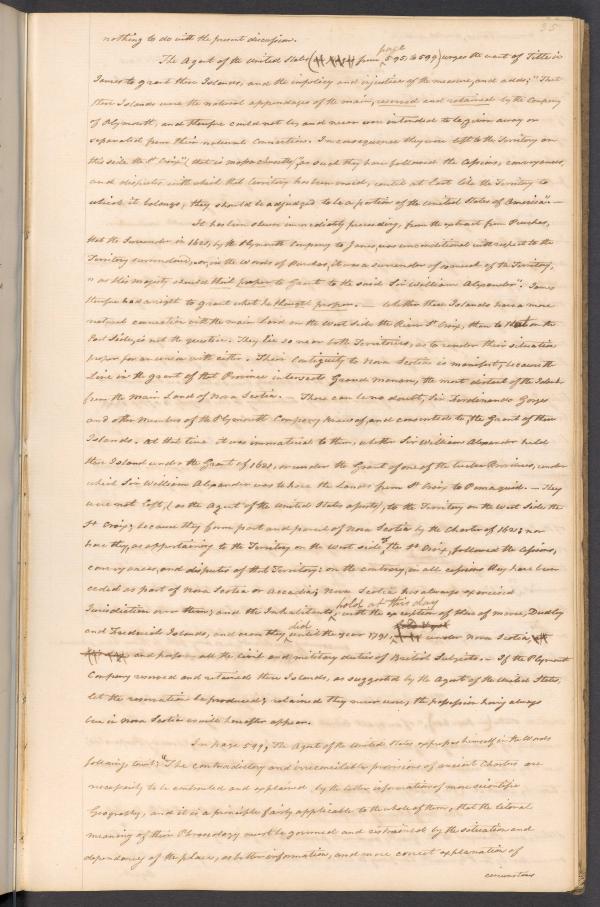 35
nothing to do with the present discussion.
The Agent of the United States (from page 595, to 599) urges the want of Title in
James to grant these Islands, and the impolicy and injustice of the measure, and adds; "That
these Islands were the natural appendages of the main, reserved and retained by the Company
of Plymouth, and therefore could not be, and never were intended to be given away or
separated from their natural Connections. In consequence they were left to the Territory on
this side the St. Croix", that is mass directly, "as such they have followed the Cessions, conveyances,
and disputes with which that territory has been vexed, until at last like the Territory to
which it belongs, they should be adjudged to be a portion of the United States of America" —
It has been shewn immediately preceding, from the extract from Purchas,
that the Surrender in 1621, by the Plymouth Company to James, was unconditional with respect to the
Territory surrendered, or, in the Words of Purchas, it was a surrender of so much of the Territory,
"as His Majesty should think proper to Grant to the said Sir William Alexander". James
therefore had a right to grant what he thought proper. — Whether these Islands have a more
natural connection with the main Land on the West side the River St. Croix, than to that on the
East Side, is not the question. They lie so near both Territories, as to render their situation
proper for an union with either. Their Contiguity to Nova Scotia is manifest; because the
Line in the grant of that Province intersects Grand Manan, the most distant of the Islands
from the main Land of Nova Scotia. — There can be no doubt, Sir Ferdinando Gorges
and other Members of the Plymouth Company knew of, and consented to, the Grant of these
Islands. At that time it was immaterial to them, whether Sir William Alexander held
these Island under the Grant of 1621, or under the Grant of one of the twelve Provinces, under
which Sir William Alexander was to have the Lands from St. Croix to Pemaquid. — They
were not left, (as the Agent of the United States asserts,) to the Territory on the West Side the
St. Croix; because they form part and parcel of Nova Scotia by the Charter of 1621; nor
have they, as appertaining to the Territory on the West side of the St. Croix, followed the Cessions,
conveyances, and disputes of that Territory: on the contrary, in all cessions they have been
ceded as part of Nova Scotia or Accadia; Nova Scotia has always exercised
Jurisdiction over them; and the Inhabitants, with the exception of those of Moose, Dudley
hold at this day
and Frederick Islands, and even they did until the year 1791, under Nova Scotia,
and perform all the civil and military duties of British Subjects. — If the Plymouth
Company reserved and retained these Islands, as suggested by the Agent of the United States,
let the reservation be produced; retained they never were, the possession having always
been in Nova Scotia as will hereafter appear.
In page 599, The Agent of the United States expresses himself in the Words
following, (viz:) "The contradictory and irreconcilable provisions of ancient Charters are
necessarily to be controuled and explained by the better information of more scientific
Geography, and it is a principle fairly applicable to the whole of them, that the literal
meaning of their Phraseology must be governed and restrained by the situation and
dependency of the places, as better information, and more correct explanation of
circumstances